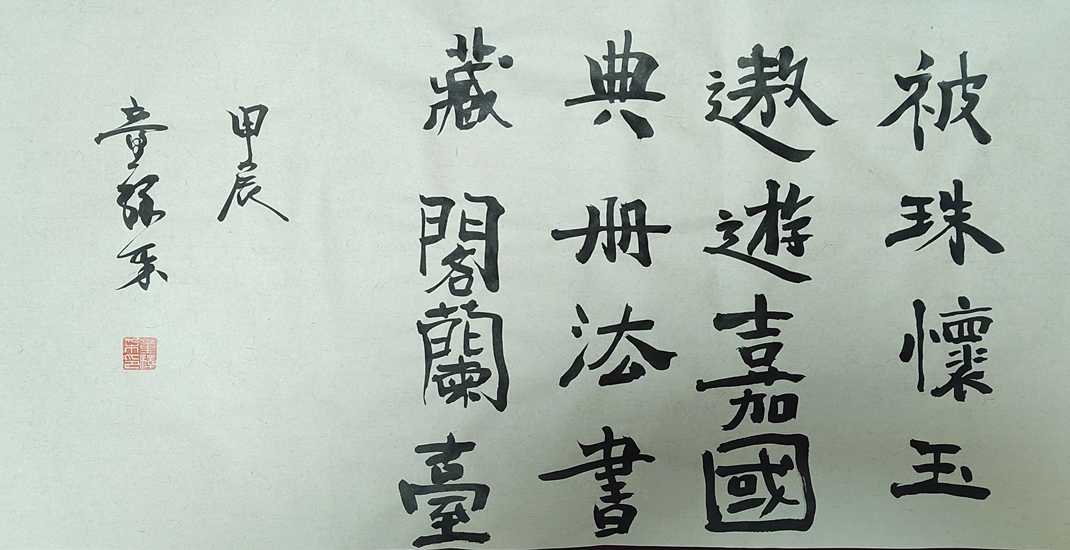 被珠懷玉
遨遊嘉國
典冊法書
藏閣蘭臺
甲辰
童